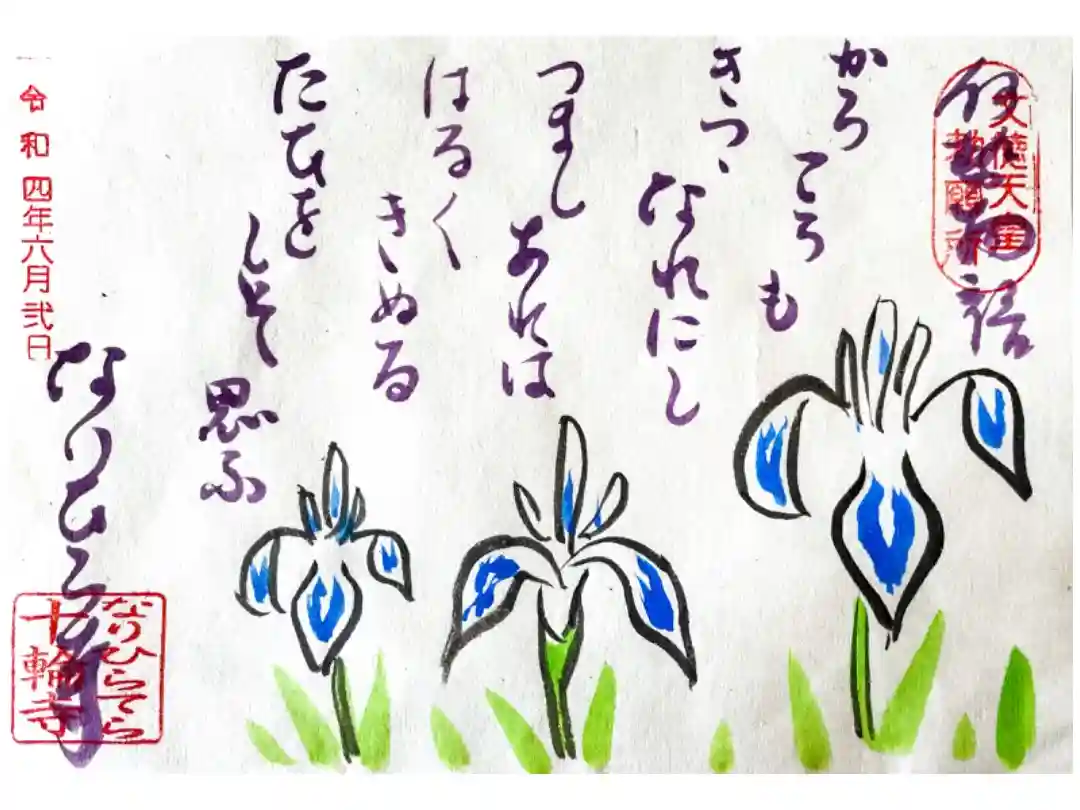 伊勢物語
文徳天皇
勅願所
から
ころ
も
きつゝ
なれにし
つまし
あれは
はるく
きぬる
たひを
しそ
思ふ
なりひら寺
なりひらてら
十輪寺
令和四年六月弐日